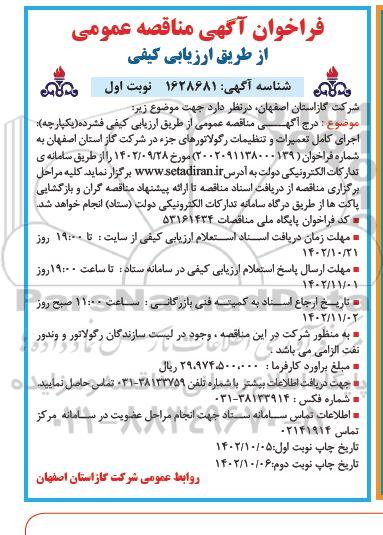 فراخوان آگهی مناقصه عمومی
از طریق ارزیابی کیفی
شناسه آگهی: ۱۶۲۸۶۸۱ نوبت اول
شرکت گازاستان اصفهان، درنظر دارد جهت موضوع زیر:
موضوع : درج آگهی مناقصه عمومی از طریق ارزیابی کیفی فشرده(یکپارچه):
اجرای کامل تعمیرات و تنظیمات رگولاتورهای جزء در شرکت گاز استان اصفهان به
شماره فراخوان ( ۲۰۰۲۰۹۱۱۳۸۰۰۰۱۳۹) مورخ ۱۴۰۲/۰۹/۲۸ را از طریق سامانه ی
تدارکات الکترونیکی دولت به آدرس www.setadiran.ir برگزار نماید. کلیه مراحل
برگزاری مناقصه از دریافت اسناد مناقصه تا ارائه پیشنهاد مناقصه گران و بازگشایی
پاکت ها از طریق درگاه سامانه تدارکات الکترونیکی دولت (ستاد) انجام خواهد شد.
کد فراخوان پایگاه ملی مناقصات ۵۳۱۶۱۴۳۴
مهلت زمان دریافت اسناد استعلام ارزیابی کیفی از سایت : تا ۱۹:۰۰ روز
۱۴۰۲/۱۰/۲۱
مهلت ارسال پاسخ استعلام ارزیابی کیفی در سامانه ستاد : تا ساعت ۱۹:۰۰روز
۱۴۰۲/۱۱/۰۱
تاریخ ارجاع اسناد به کمیته فنی بازرگانی : ساعت ۱۱:۰۰ صبح روز
۱۴۰۲/۱۱/۰۲
به منظور شرکت در این مناقصه ، وجود در لیست سازندگان رگولاتور و وندور
نفت الزامی می باشد .
مبلغ برآورد کارفرما : ۲۹،۹۷۴،۵۰۰،۰۰۰ ریال
جهت دریافت اطلاعات بیشتر با شماره تلفن ۳۸۱۳۳۷۵۹-۰۳۱ تماس حاصل نمایید.
شماره فکس : ۳۸۱۳۳۹۱۴-۰۳۱
اطلاعات تماس سامانه ستاد جهت انجام مراحل عضویت در سامانه مرکز
تماس ۰۲۱۴۱۹۱۴
تاریخ چاپ نوبت اول:۱۴۰۲/۱۰/۰۵
تاریخ چاپ نوبت دوم:۱۴۰۲/۱۰/۰۶
روابط عمومی شرکت گازاستان اصفهان